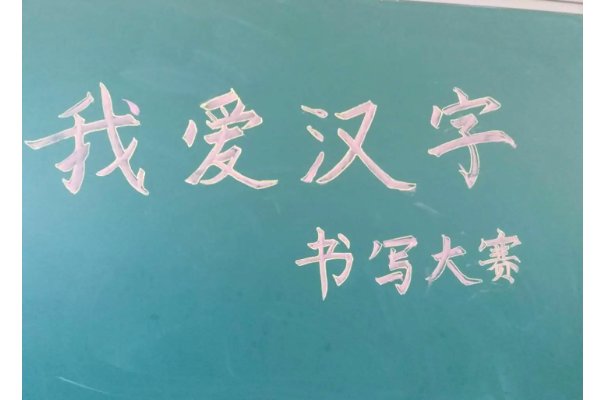 我爱汉字
书写大赛